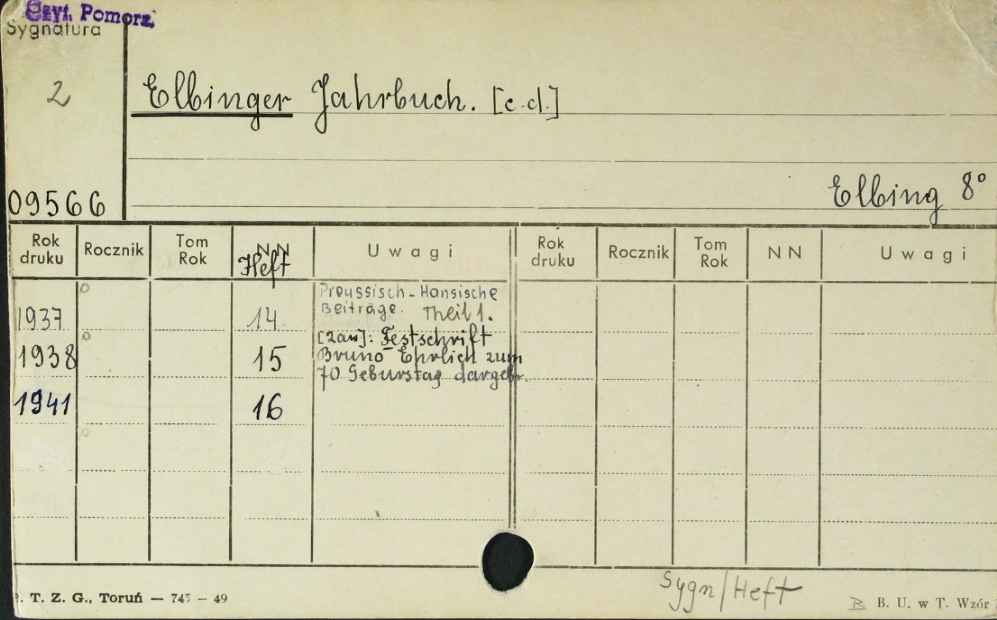 Czyt. Pomorz.
Sygnatura
2
Elbinger Jahrbuch. [c.d.]
Elbing 8°
09566
Rok druku Rocznik Tom Rok NN Heft Uwagi Rok druku Rocznik Tom Rok NN Uwagi
1937 14 Preussisch-Hansische Beiträge. Theil 1.
1938 15 [zaw]: Festschrift Bruno Ehrlich zum 70 Geburstag dargebr.
1941 16
Sygn/Heft
T. Z. G., Toruń — 747 — 49
B. U. w T. Wzór